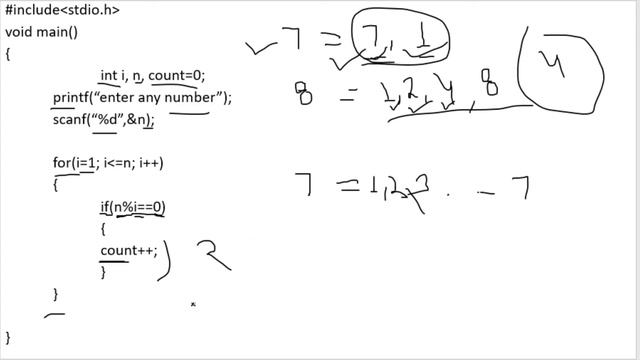 #include<stdio.h>
void main()
{
int i, n, count=0;
printf(“enter any number”);
scanf(“%d”,&n);
for(i=1; i<=n; i++)
{
if(n%i==0)
{
count++;
}
}
}
7 = 7, 1
8 = 1, 2, 4, 8
4
7 = 1, 2, 3 . - 7
2